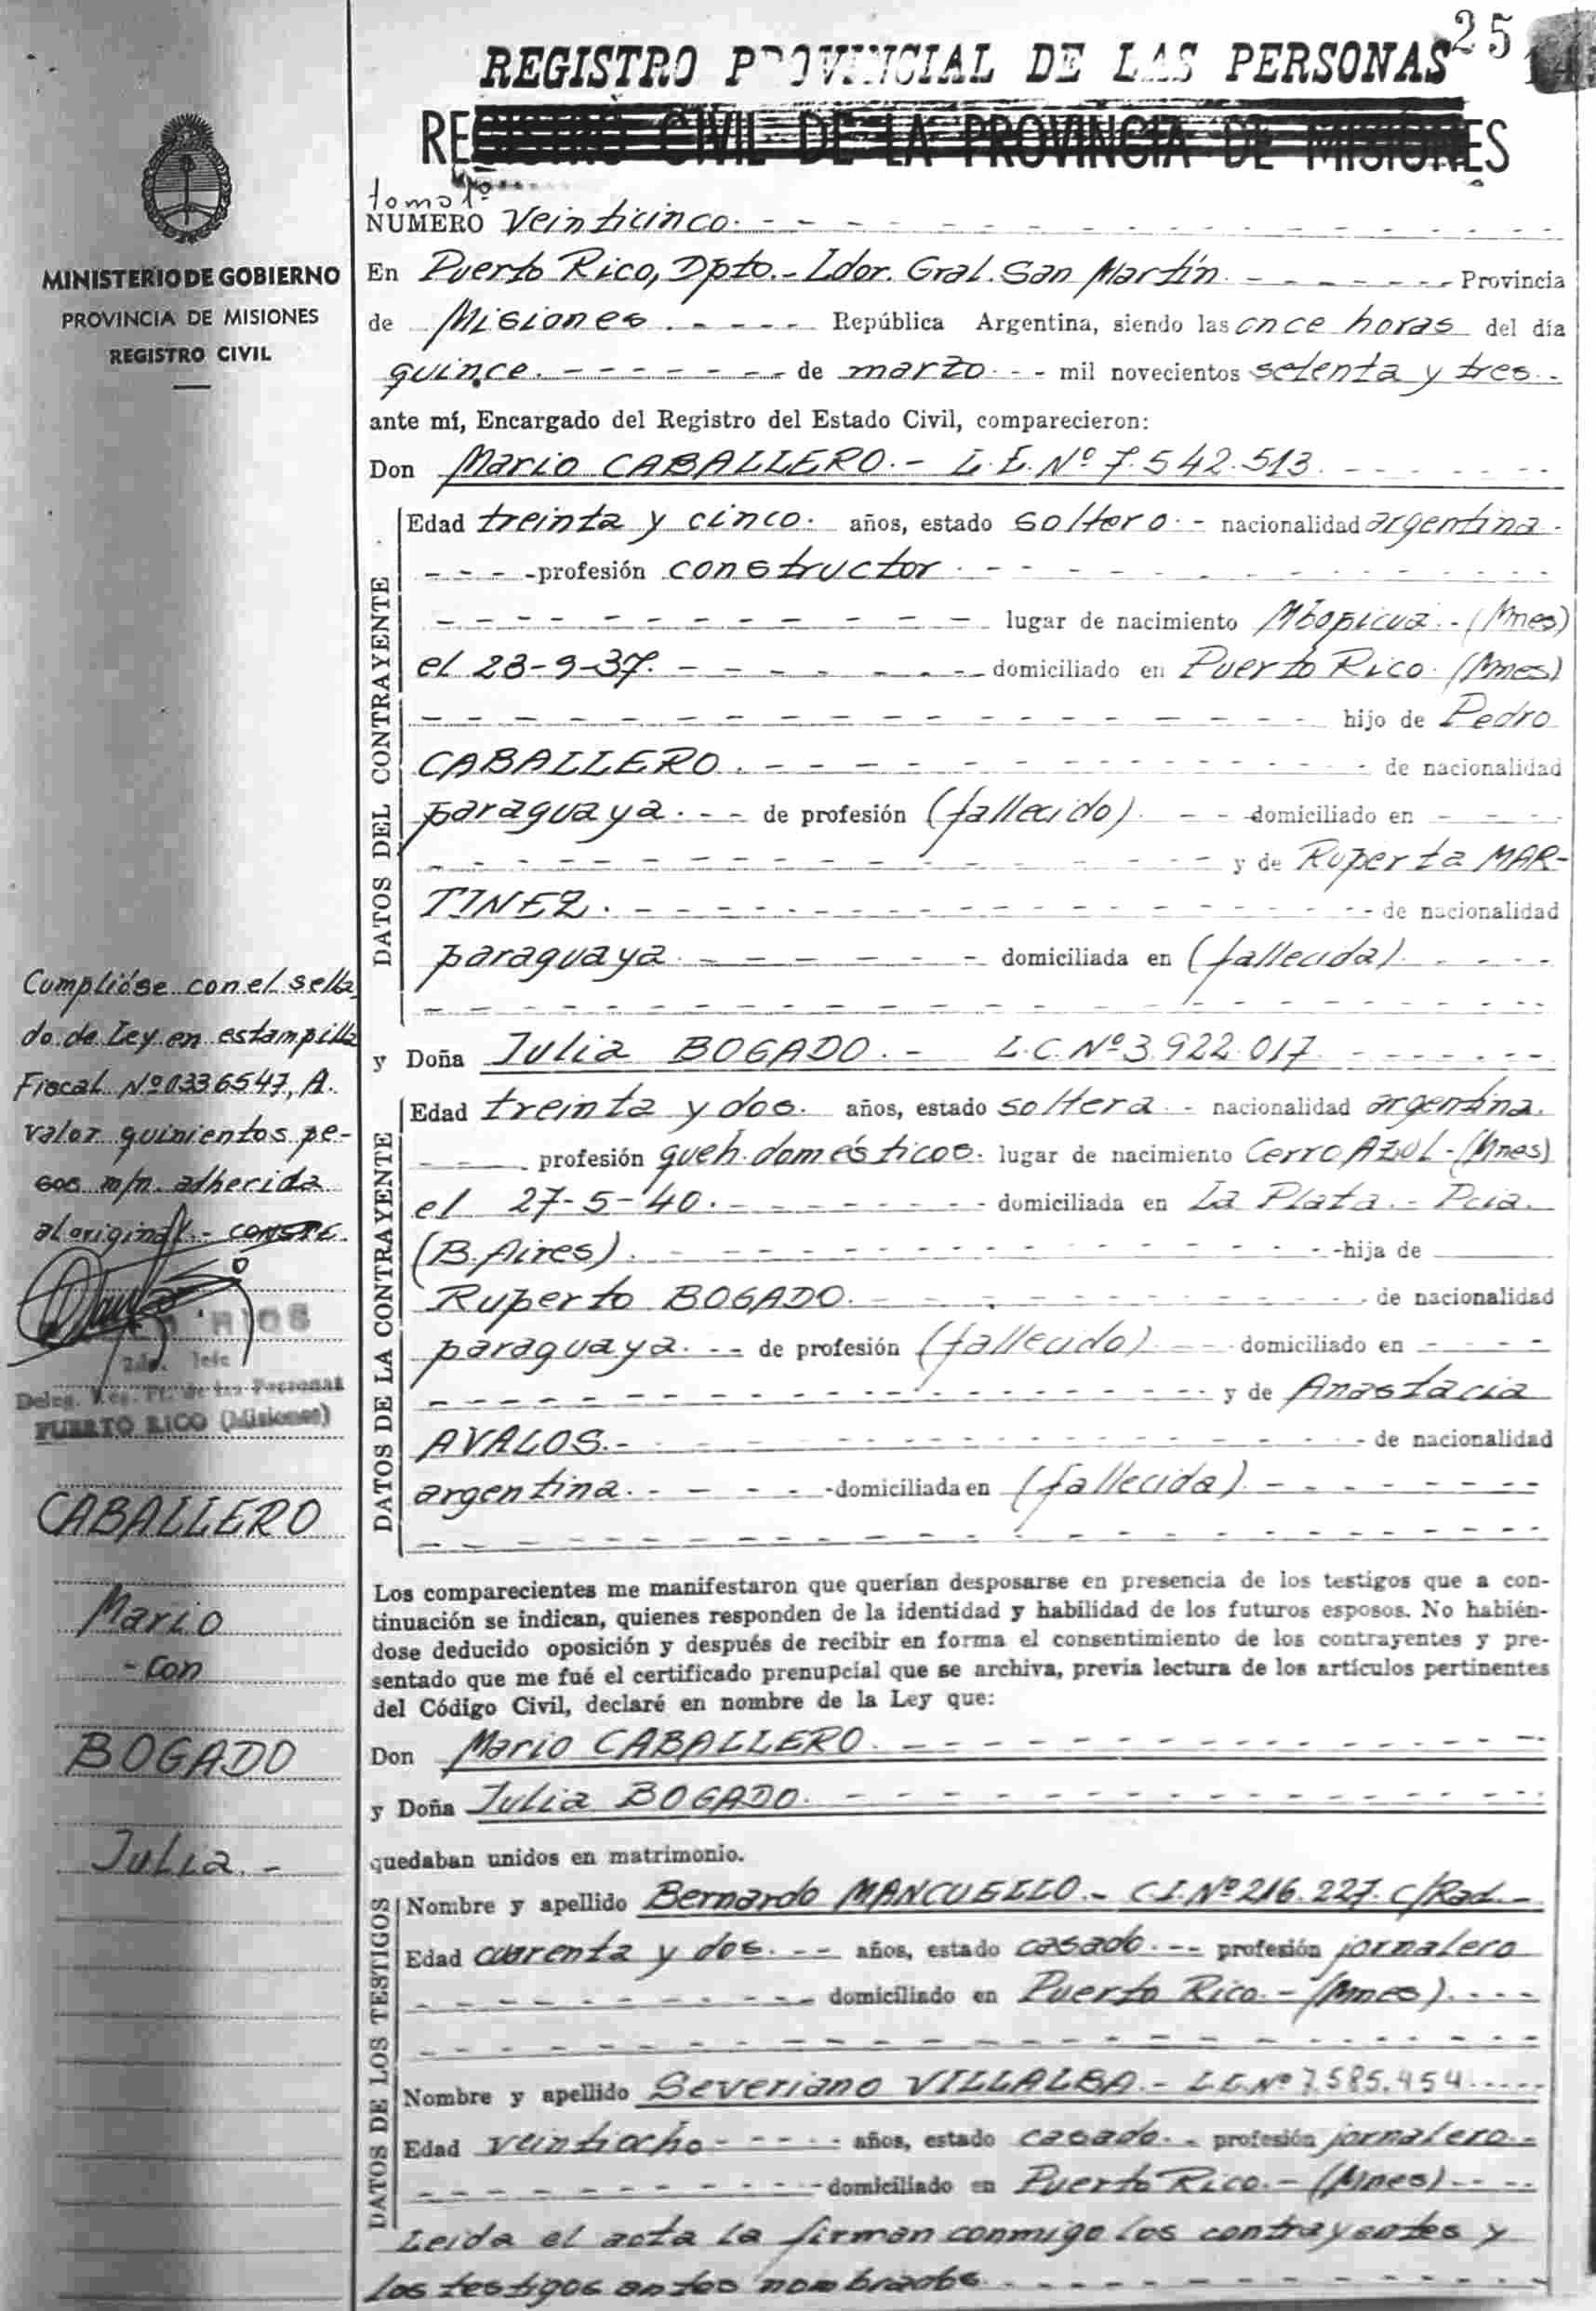 25
REGISTRO PROVINCIAL DE LAS PERSONAS
REGISTRO CIVIL DE LA PROVINCIA DE MISIONES
MINISTERIO DE GOBIERNO
PROVINCIA DE MISIONES
REGISTRO CIVIL
tomo 1º
NUMERO Veinticinco.
En Puerto Rico, Dpto.- Ldor. Gral. San Martín. Provincia
de Misiones. República Argentina, siendo las once horas del día
quince. de marzo. mil novecientos setenta y tres.
ante mí, Encargado del Registro del Estado Civil, comparecieron:
Don Mario CABALLERO.- L.E. Nº 7.542.513.
DATOS DEL CONTRAYENTE
Edad treinta y cinco. años, estado soltero. - nacionalidad argentina.
profesión constructor.
lugar de nacimiento Mbopicua.- (Mnes)
el 28-9-37. domiciliado en Puerto Rico. (Mnes)
hijo de Pedro
CABALLERO. de nacionalidad
paraguaya. de profesión (fallecido). domiciliado en
y de Ruperta MAR-
TINEZ. de nacionalidad
paraguaya. domiciliada en (fallecida).
y Doña Julia BOGADO.- L.C. Nº 3.922.017.
DATOS DE LA CONTRAYENTE
Edad treinta y dos. años, estado soltera. - nacionalidad argentina.
profesión queh. domésticos. lugar de nacimiento Cerro Azul - (Mnes)
el 27-5-40. domiciliada en La Plata.- Pcia.
(B. Aires). hija de
Ruperto BOGADO. de nacionalidad
paraguaya. de profesión (fallecido). domiciliado en
y de Anastacia
AVALOS. de nacionalidad
argentina. domiciliada en (fallecida).
Los comparecientes me manifestaron que querían desposarse en presencia de los testigos que a con-
tinuación se indican, quienes responden de la identidad y habilidad de los futuros esposos. No habién-
dose deducido oposición y después de recibir en forma el consentimiento de los contrayentes y pre-
sentado que me fué el certificado prenupcial que se archiva, previa lectura de los artículos pertinentes
del Código Civil, declaré en nombre de la Ley que:
Don Mario CABALLERO.
y Doña Julia BOGADO.
quedaban unidos en matrimonio.
DATOS DE LOS TESTIGOS
Nombre y apellido Bernardo MANCUELLO.- C.I. Nº 216.227. C/Rad.-
Edad cuarenta y dos. años, estado casado. profesión jornalero
domiciliado en Puerto Rico.- (Mnes).
Nombre y apellido Severiano VILLALBA.- L.E. Nº 7.585.454
Edad veintiocho años, estado casado. profesión jornalero.
domiciliado en Puerto Rico.- (Mnes)
Leida el acta la firman conmigo los contrayentes y
los testigos antes nombrados.
Cumplióse con el sella
do de Ley en estampilla
Fiscal Nº 0336547, A.
valor quinientos pe-
sos m/n. adherida
al original.- CONSTE.
RIOS
Jefe
Deleg. Reg. Pr. de las Personas
PUERTO RICO (Misiones)
CABALLERO
Mario
- con
BOGADO
Julia.-